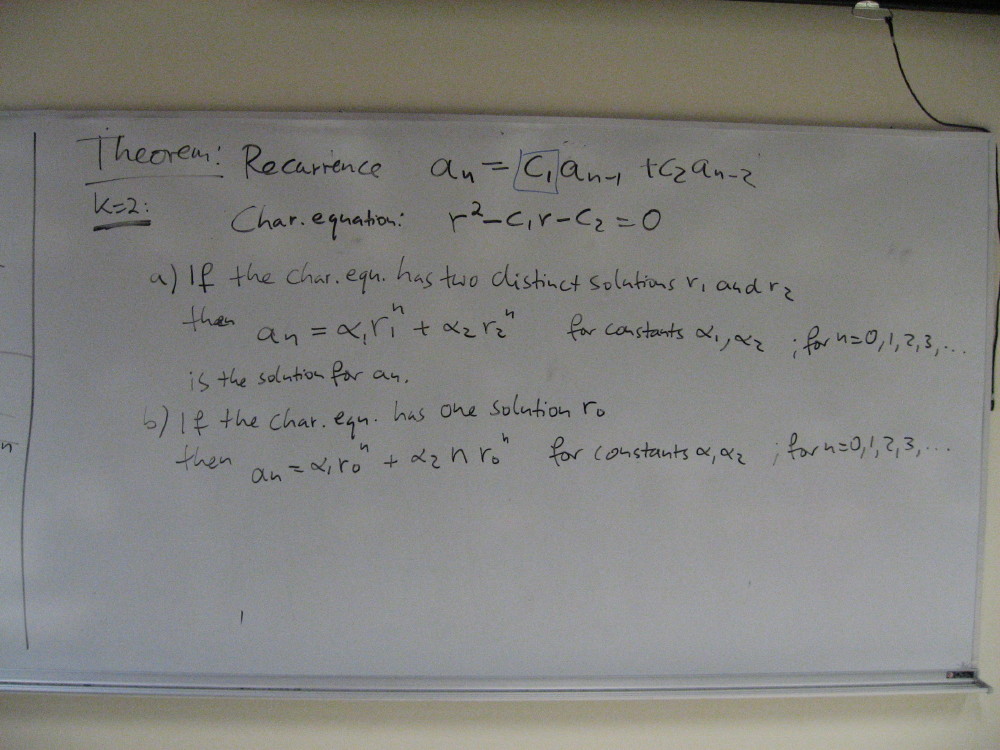 Theorem: Recurrence aₙ = c₁aₙ₋₁ + c₂aₙ₋₂
k=2:
Char. equation: r² - c₁r - c₂ = 0
a) If the char. eqn. has two distinct solutions r₁ and r₂
then aₙ = α₁r₁ⁿ + α₂r₂ⁿ for constants α₁, α₂ ; for n=0,1,2,3,...
is the solution for aₙ.
b) If the char. eqn. has one solution r₀
then aₙ = α₁r₀ⁿ + α₂ n r₀ⁿ for constants α, α₂ ; for n=0,1,2,3,...
n